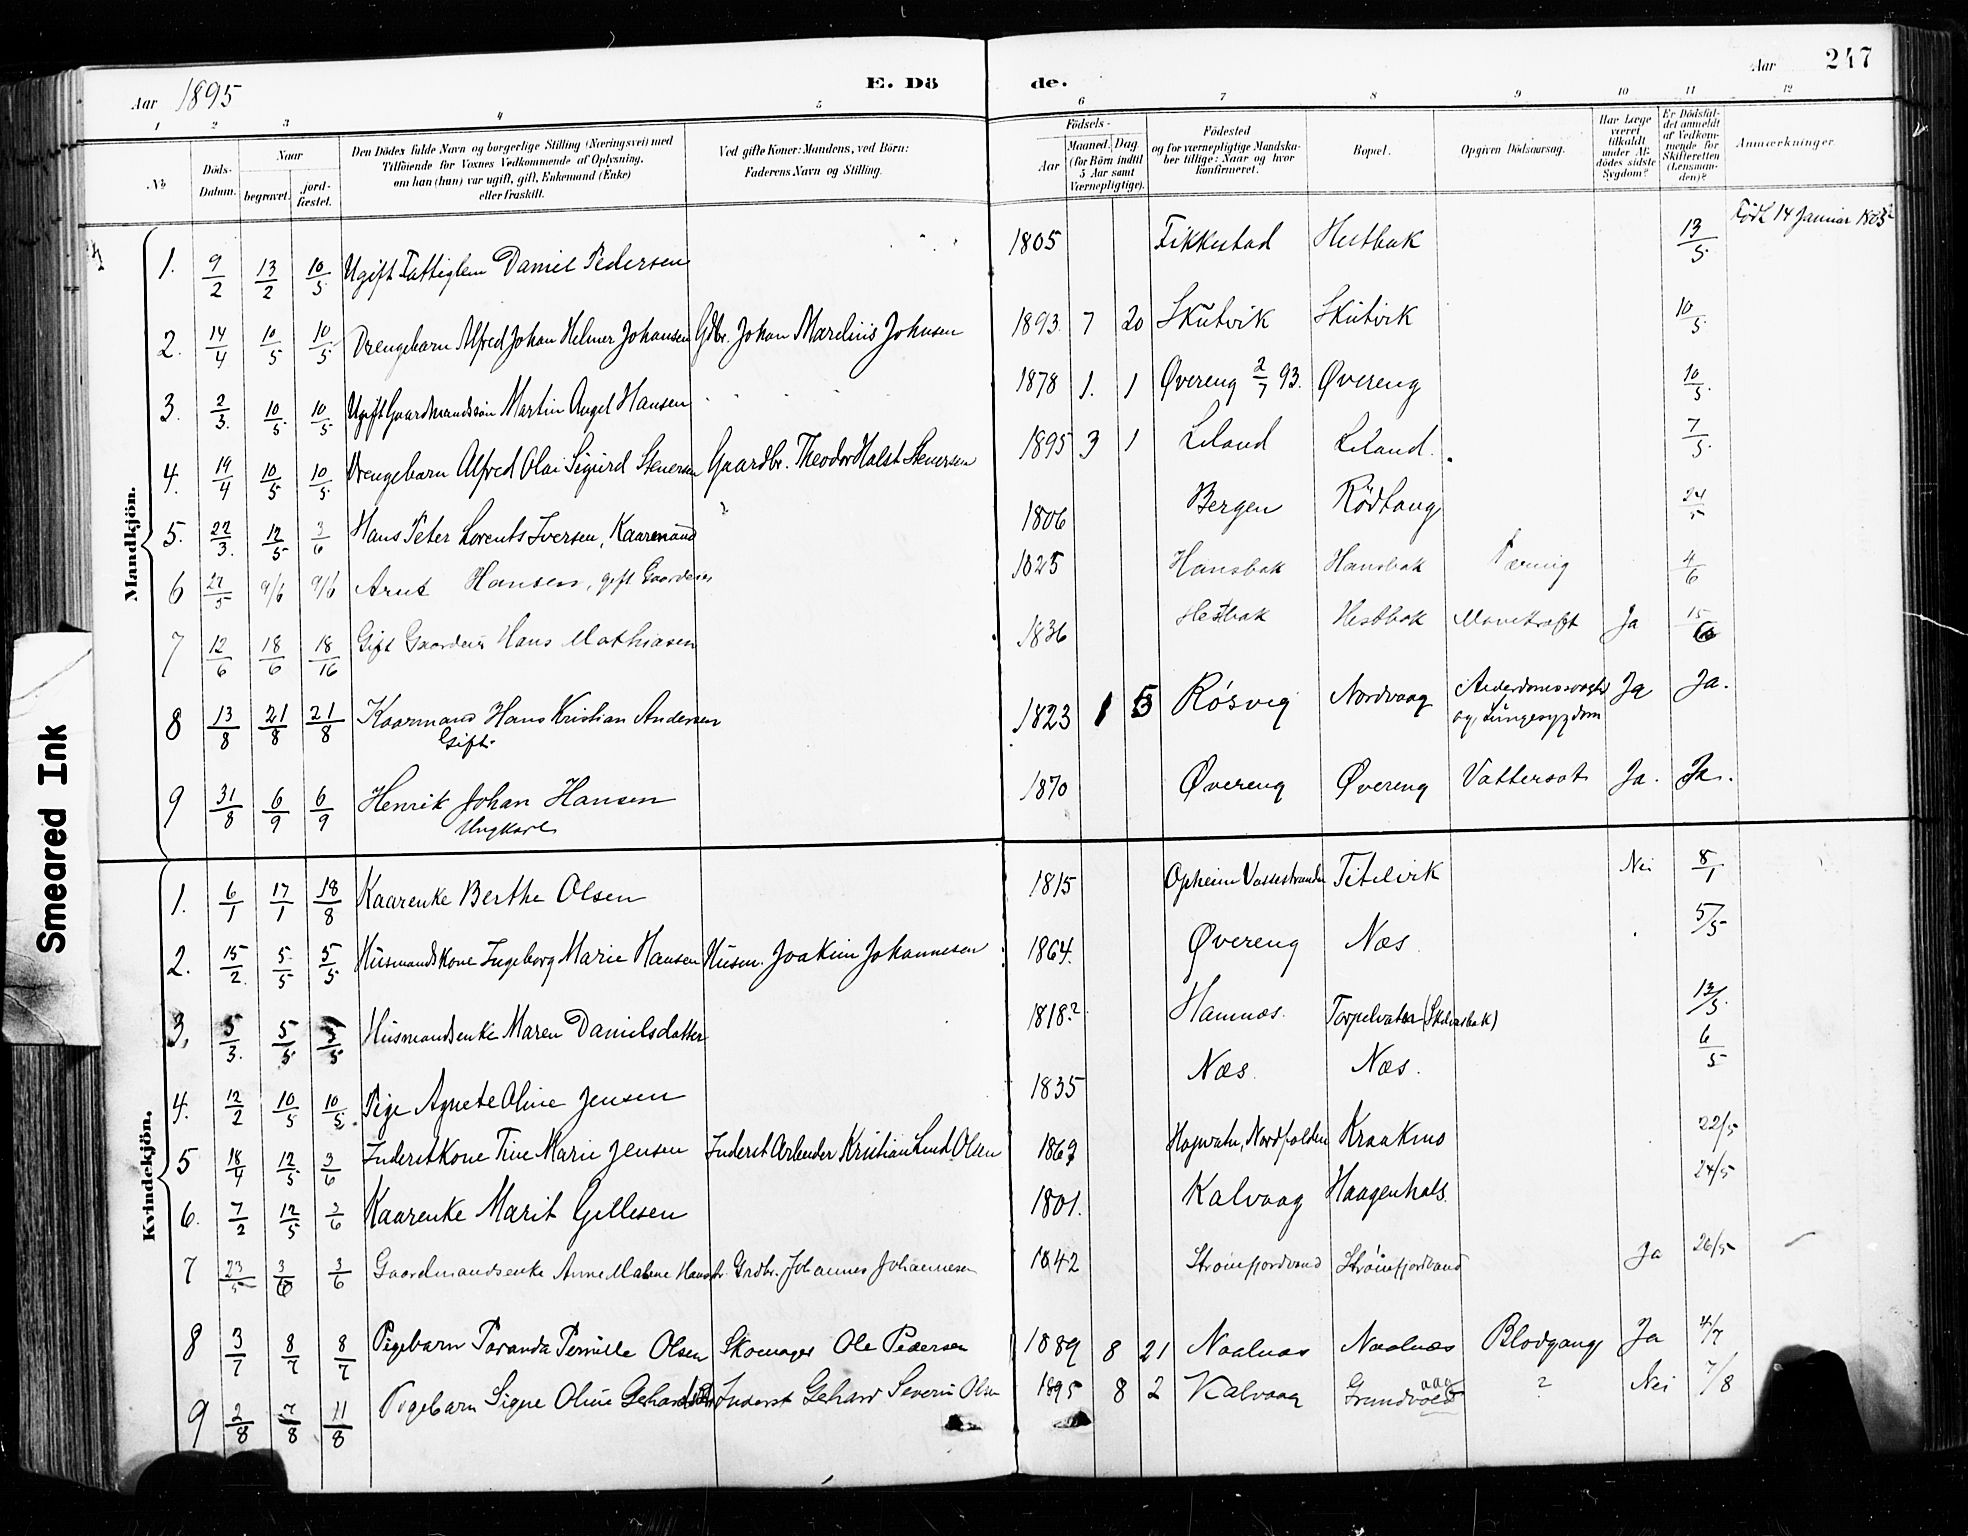 Aar 1895 E. Dö de. Aar 247
1 2 3 4 5 6 7 8 9 10 11 12
№ Döds-Datum. Naar begravet. jord-fæstet. Den Dödes fulde Navn og borgerlige Stilling (Næringsvei) med Tilföiende for Voxnes Vedkommende af Oplysning, om han (hun) var ugift, gift, Enkemand (Enke) eller fraskilt. Ved gifte Koner: Mandens, ved Börn: Faderens Navn og Stilling. Födsels- Aar Maaned. Dag (for Börn indtil 5 Aar samt Værnepligtige). Födested og for værnepligtige Mandskaber tillige: Naar og hvor konfirmeret. Bopæl. Opgiven Dödsaarsag. Har Læge været tilkaldt under Afdödes sidste Sygdom? Er Dödsfaldet anmeldt af Vedkommende for Skifteretten (Lensmanden)? Anmærkninger.
Mandkjön.
1. 9/2 13/2 10/5 Ugift Fattiglem Daniel Pedersen 1805 Fikkestad Hestbak 13/5 Födt 14 Januar 1803?
2. 14/4 10/5 10/5 Drengebarn Alfred Johan Helmer Johansen Gdbr. Johan Marelius Johnsen 1893. 7 20 Skutvik Skutvik 10/5.
3. 2/3. 10/5. 10/5 Ugift Gaardmandssön Martin Angel Hansen 1878 1. 1 Øvereng 2/7 93. Øvereng 10/5.
4. 14/4 10/5 10/5. Drengebarn Alfred Olai Sigurd Stenersen Gaardbr. Theodor Holst Stenersen 1895 3 1 Leland Leland. 7/5.
5. 22/3. 12/5 3/6 Hans Peter Lorents Iversen, Kaarmand 1806 Bergen Rödtang 24/5
6 27/5 9/6 9/6 Arnt Hansen, gift Gaardeier 1825 Hansbak Hansbak Tæring 4/6
7 12/6 18/6 18/16 Gift Gaardeier Hans Mathiasen 1836 Hestbak Hestbak Mavekræft Ja 15/6
8 13/8 21/8 21/8 Kaarmand Hans Kristian Andersen Gift. 1823 1 5 Røsvig Nordvaag Alderdomssvaghed og Lungesygdom Ja Ja.
9 31/8 6/9 6/9 Henrik Johan Hansen Ungkarl 1870 Øvereng Øvereng Vattersot Ja. Ja.
Kvindekjön.
1. 6/1 17/1 18/8 Kaarenke Berthe Olsen 1815 Opheim Vossestranden Titelvik Nei 8/1
2. 15/2. 5/5 5/5 Husmandskone Ingeborg Marie Hansen Husm. Joakim Johannesen 1864. Øvereng Næs. 5/5
3. 5/3. 5/5 5/5 Husmandsenke Maren Danielsdatter 1818? Hamnæs. 12/5.
4. 12/2 10/5 10/5. Pige Agnete Oline Jensen 1835 Næs. Næs. 6/5
5 18/4 12/5. 3/6 Inderstkone Tine Marie Jensen Inderst Arbeider Kristian Lund Olsen Nordfolden Kraakmo 22/5
6. 7/2 12/5 3/6 Kaarenke Marit Gillesen 1801. Kalvaag Haagenhals. 24/5
7 23/5 3/6 3/6 Gaardmandsenke Anne Malene Hansdr. Grdbr. Johannes Johannesen 1842 Strömfjordvand Strömfjordvand Ja 26/5
8 3/7 8/7 8/7 Pigebarn Paranda Pernille Olsen Skomager Ole Pedersen 1889 8 21 Naalnæs Naalnæs Blodgang Ja 4/7
9 2/8 7/8 11/8 Pigebarn Signe Oline Inderst Gerhard Severin Olsen 1895 8 2 Kalvaag ? Nei 7/8
Smeared Ink